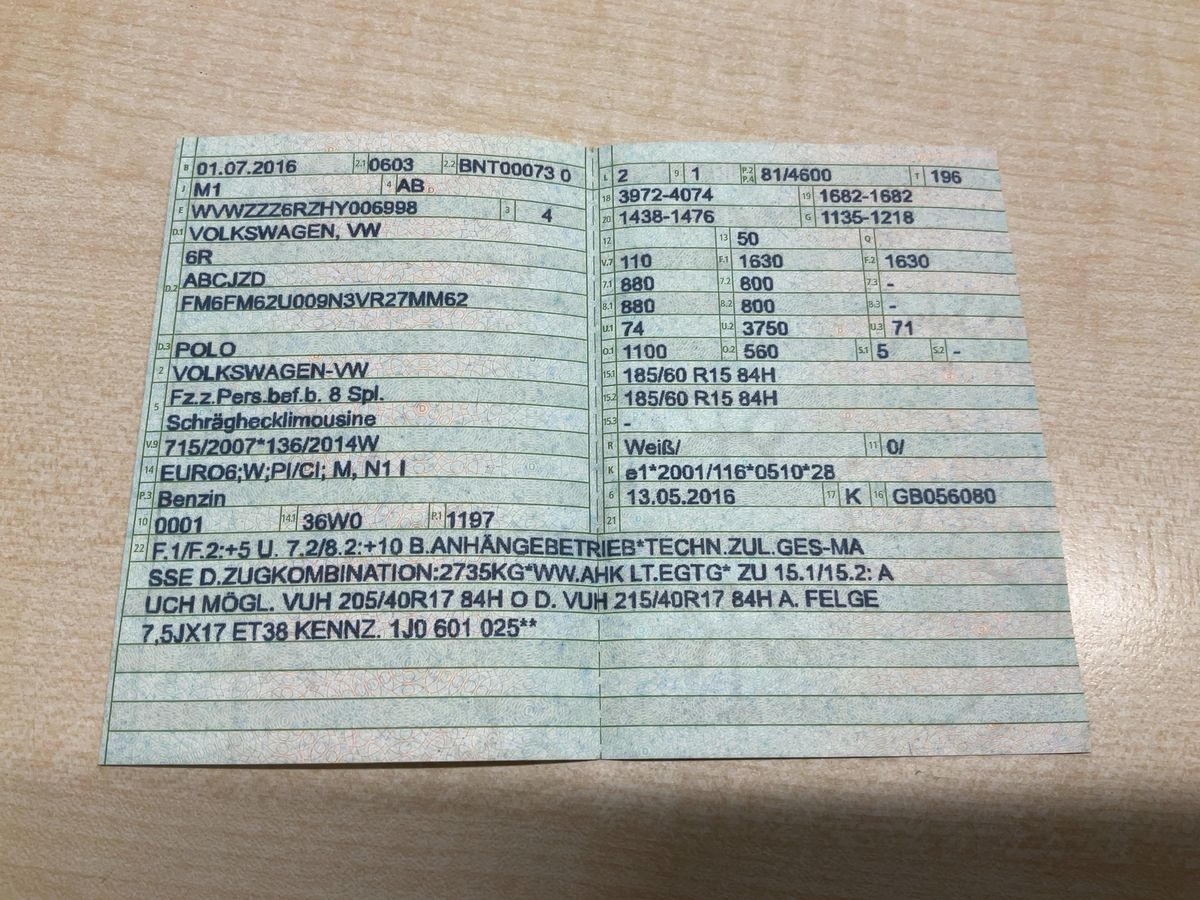 B 01.07.2016 2.1 0603 2.2 BNT00073 0
J M1 4 AB
E WVWZZZ6RZHY006998 3 4
D.1 VOLKSWAGEN, VW
6R
D.2 ABCJZD
FM6FM62U009N3VR27MM62
D.3 POLO
2 VOLKSWAGEN-VW
5 Fz.z.Pers.bef.b. 8 Spl.
Schräghecklimousine
V.9 715/2007*136/2014W
14 EURO6;W;PI/CI; M, N1 I
P.3 Benzin
10 0001 14.1 36W0 P.1 1197
L 2 9 1 P.2 P.4 81/4600 T 196
18 3972-4074 19 1682-1682
20 1438-1476 G 1135-1218
12 13 50 Q
V.7 110 F.1 1630 F.2 1630
7.1 880 7.2 800 7.3 -
8.1 880 8.2 800 8.3 -
U.1 74 U.2 3750 U.3 71
O.1 1100 O.2 560 S.1 5 S.2 -
15.1 185/60 R15 84H
15.2 185/60 R15 84H
15.3 -
R Weiß/ 11 0/
K e1*2001/116*0510*28
6 13.05.2016 17 K 16 GB056080
21
22 F.1/F.2:+5 U. 7.2/8.2:+10 B.ANHÄNGEBETRIEB*TECHN.ZUL.GES-MA
SSE D.ZUGKOMBINATION:2735KG*WW.AHK LT.EGTG* ZU 15.1/15.2: A
UCH MÖGL. VUH 205/40R17 84H O D. VUH 215/40R17 84H A. FELGE
7,5JX17 ET38 KENNZ. 1J0 601 025**